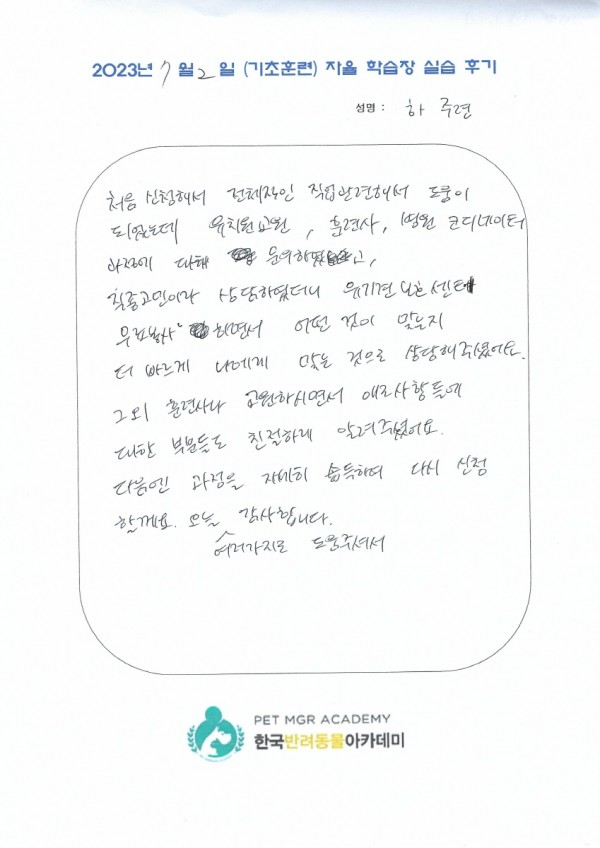 2023년 7월 2일 (기초훈련) 자율 학습장 실습 후기
성명 : 하 주련
처음 신청해서 전체적인 직업관련해서 도움이
되었는데 유치원교원, 훈련사, 병원 코디네이터
과정에 대해 문의하였고,
최종고민이라 상담하였더니 유기견보호센터
무료봉사 하면서 어떤 것이 맞는지
더 빠르게 나에게 맞는 것으로 상담해주셨어요.
그외 훈련사나 교원하시면서 애로사항들에
대한 부분들도 친절하게 알려주셨어요.
다음엔 과정을 자세히 습득하여 다시 신청
할께요. 오늘 감사합니다.
여러가지로 도움주셔서
PET MGR ACADEMY
한국반려동물아카데미